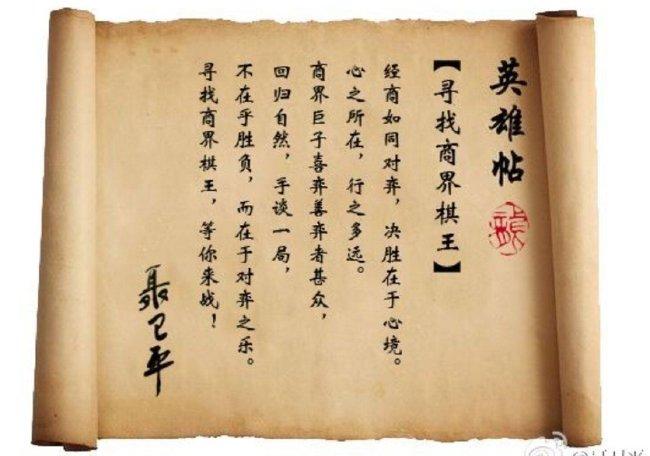 英雄帖
【寻找商界棋王】
经商如同对弈，决胜在于心境。
心之所在，行之多远。
商界巨子喜弈善弈者甚众，
回归自然，手谈一局，
不在乎胜负，而在于对弈之乐。
寻找商界棋王，等你来战！
聂卫平